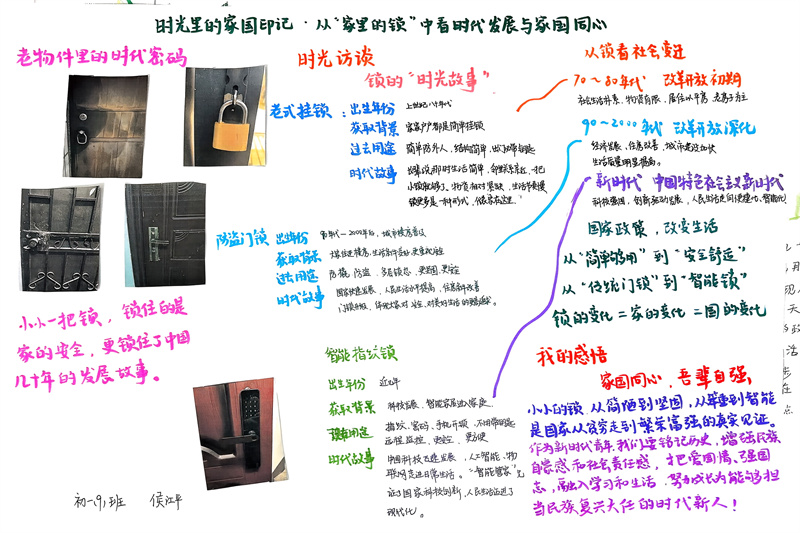 时光里的家国印记·从“家里的锁”中看时代发展与家国同心
老物件里的时代密码
小小一把锁，锁住的是
家的安全，更锁住了中国
几十年的发展故事。
初一(9)班 侯江平
时光访谈
锁的“时光故事”
老式挂锁：出生年份 上世纪八十年代
获取背景 家家户户都是简单挂锁
过去用途 简单防外人，结构简单，
时代故事 那时生活简单，一把
小锁就够了，物资相对紧缺，生活节奏慢
防盗门锁 出生年份 2000年后，城市楼房普及
获取背景
过去用途 防撬，防盗，多层锁芯，更坚固，更安全
时代故事 国家快速发展，人民生活水平提高，住房条件改善
智能指纹锁
出生年份 近几年
获取背景 科技发展，智能家居进入家庭。
用途 指纹、密码、手机开锁，不用带钥匙
远程监控，更安全，更方便
时代故事 中国科技飞速发展，人工智能、物
联网走进日常生活。“智能管家”见
证了国家科技创新，人民生活迈进了
现代化。
从锁看社会变迁
70～80年代 改革开放初期
市民生活朴素，物资有限，居住以平房、老房子为主
90～2000年代 改革开放深化
经济发展，住房改善，城市建设加快
生活质量明显提高。
新时代 中国特色社会主义新时代
科技强国，创新驱动发展，人民生活走向便捷化、智能化！
国家政策，改变生活
从“简单够用”到“安全舒适”
从“传统门锁”到“智能锁”
锁的变化＝家的变化＝国的变化
我的感悟
家国同心，吾辈自强。
小小的锁，从简陋到坚固，从笨重到智能
是国家从贫穷走到繁荣富强的真实见证。
作为新时代青年，我们要铭记历史，增强民族
自豪感和社会责任感，把爱国情、强国
志，融入学习和生活，努力成长为能够担
当民族复兴大任的时代新人！